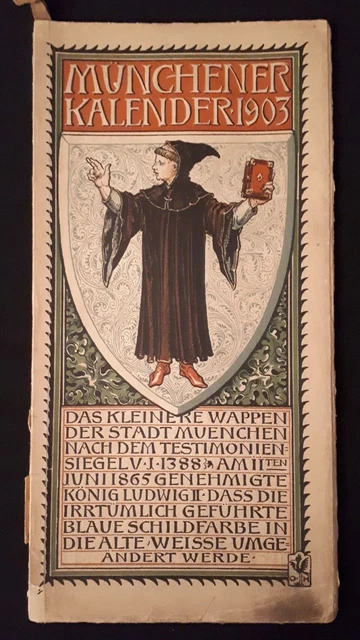 MÜNCHENER
KALENDER·1903
DAS KLEINERE WAPPEN
DER STADT MUENCHEN
NACH DEM TESTIMONIEN-
SIEGEL V·J·1388 AM 11TEN
JUNI 1865 GENEHMIGTE
KÖNIG LUDWIG II·DASS DIE
IRRTUMLICH GEFÜHRTE
BLAUE SCHILDFARBE IN
DIE ALTE WEISSE UMGE-
ÄNDERT WERDE·
O H